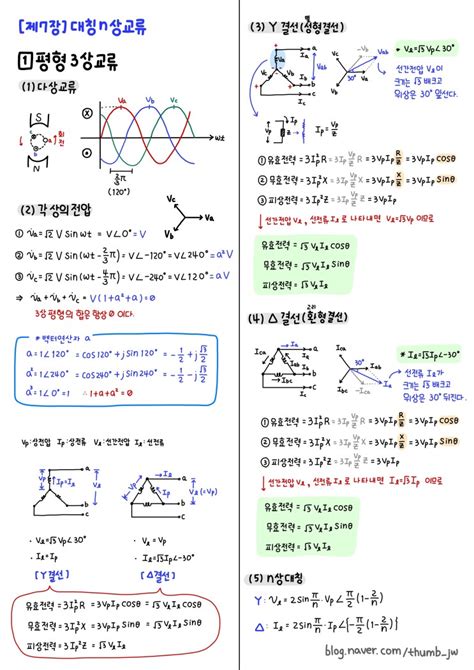 [제7장] 대칭 n상교류
1 평형 3상교류
(1) 다상교류
Va Vb Vc
S
N
회전
ωt
2/3 π
(120°)
(2) 각 상의 전압
Vc
Va
Vb
① V̇a = √2 V Sin ωt = V∠0° = V
② V̇b = √2 V Sin(ωt - 2/3 π) = V∠-120° = V∠240° = a²V
③ V̇c = √2 V Sin(ωt - 4/3 π) = V∠-240° = V∠120° = aV
⇒ V̇a + V̇b + V̇c = V(1+a²+a) = 0
3상 평형의 합은 항상 0 이다.
* 벡터연산자 a
a = 1∠120° = cos120° + j Sin120° = -1/2 + j √3/2
a² = 1∠240° = cos240° + j Sin240° = -1/2 - j √3/2
a³ = 1∠0° = 1 ∴ 1+a+a² = 0
Vp: 상전압 Ip: 상전류 Vl: 선간전압 Il: 선전류
a
Vp Ip=Il Vl
b
c
a
Ip Il Vl(=Vp)
b
c
· Vl = √3 Vp · Vl = Vp
· Il = Ip · Il = √3 Ip∠-30°
[Y결선] [△결선]
유효전력 = 3Ip²R = 3VpIp cosθ = √3 VlIl cosθ
무효전력 = 3Ip²X = 3VpIp Sinθ = √3 VlIl Sinθ
피상전력 = 3Ip²Z = √3 VlIl
(3) Y 결선 (성형결선)
* Vl = √3 Vp∠30°
선간전압 Vl이
크기는 √3 배크고
위상은 30° 앞선다.
① 유효전력 = 3Ip²R = 3Ip Vp/Z R = 3VpIp R/Z = 3VpIp cosθ
② 무효전력 = 3Ip²X = 3Ip Vp/Z X = 3VpIp X/Z = 3VpIp Sinθ
③ 피상전력 = 3Ip²Z = 3Ip Vp/Z Z = 3VpIp
↓ 선간전압 Vl, 선전류 Il 로 나타내면 Vl=√3Vp 이므로
유효전력 = √3 VlIl cosθ
무효전력 = √3 VlIl Sinθ
피상전력 = √3 VlIl
(4) △ 결선 (환형결선)
* Il = √3 Ip∠-30°
선전류 Il가
크기는 √3 배크고
위상은 30° 뒤진다.
① 유효전력 = 3Ip²R = 3Ip Vp/Z R = 3VpIp R/Z = 3VpIp cosθ
② 무효전력 = 3Ip²X = 3Ip Vp/Z X = 3VpIp X/Z = 3VpIp Sinθ
③ 피상전력 = 3Ip²Z = 3Ip Vp/Z Z = 3VpIp
↓ 선간전압 Vl, 선전류 Il 로 나타내면 Il=√3Ip 이므로
유효전력 = √3 VlIl cosθ
무효전력 = √3 VlIl Sinθ
피상전력 = √3 VlIl
(5) n상 대칭
Y: Vl = 2sin π/n · Vp∠π/2(1-2/n)
△: Il = 2sin π/n · Ip∠{-π/2(1-2/n)}
blog.naver.com/thumb_jw